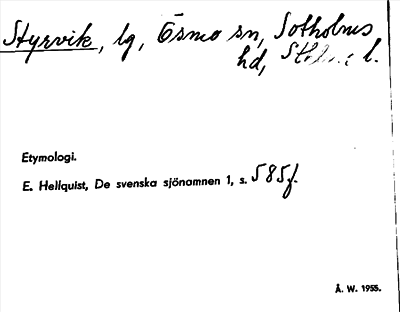 Styrvik, lg, Ösmo sn, Sotholms
hd, Sthlms l.
Etymologi.
E. Hellquist, De svenska sjönamnen 1, s. 585f.
Å. W. 1955.